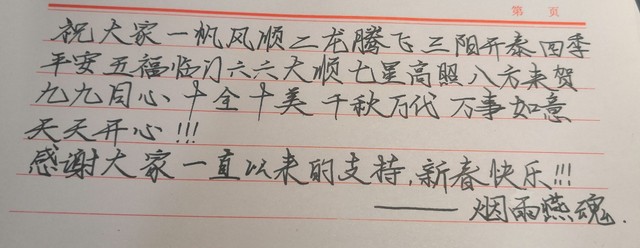 第 页
祝大家一帆风顺二龙腾飞三阳开泰四季
平安五福临门六六大顺七星高照八方来贺
九九同心十全十美千秋万代万事如意
天天开心!!!
感谢大家一直以来的支持,新春快乐!!!
——烟雨燕魂.